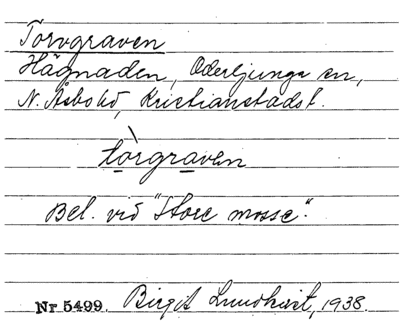 Torvgraven
Hägnaden, Oderljunga sn,
N. Åsbo hd, Kristianstads l.
tòrgraven
Bel. vid "Store mosse".
Nr 5499. Birgit Lundkvist, 1938.